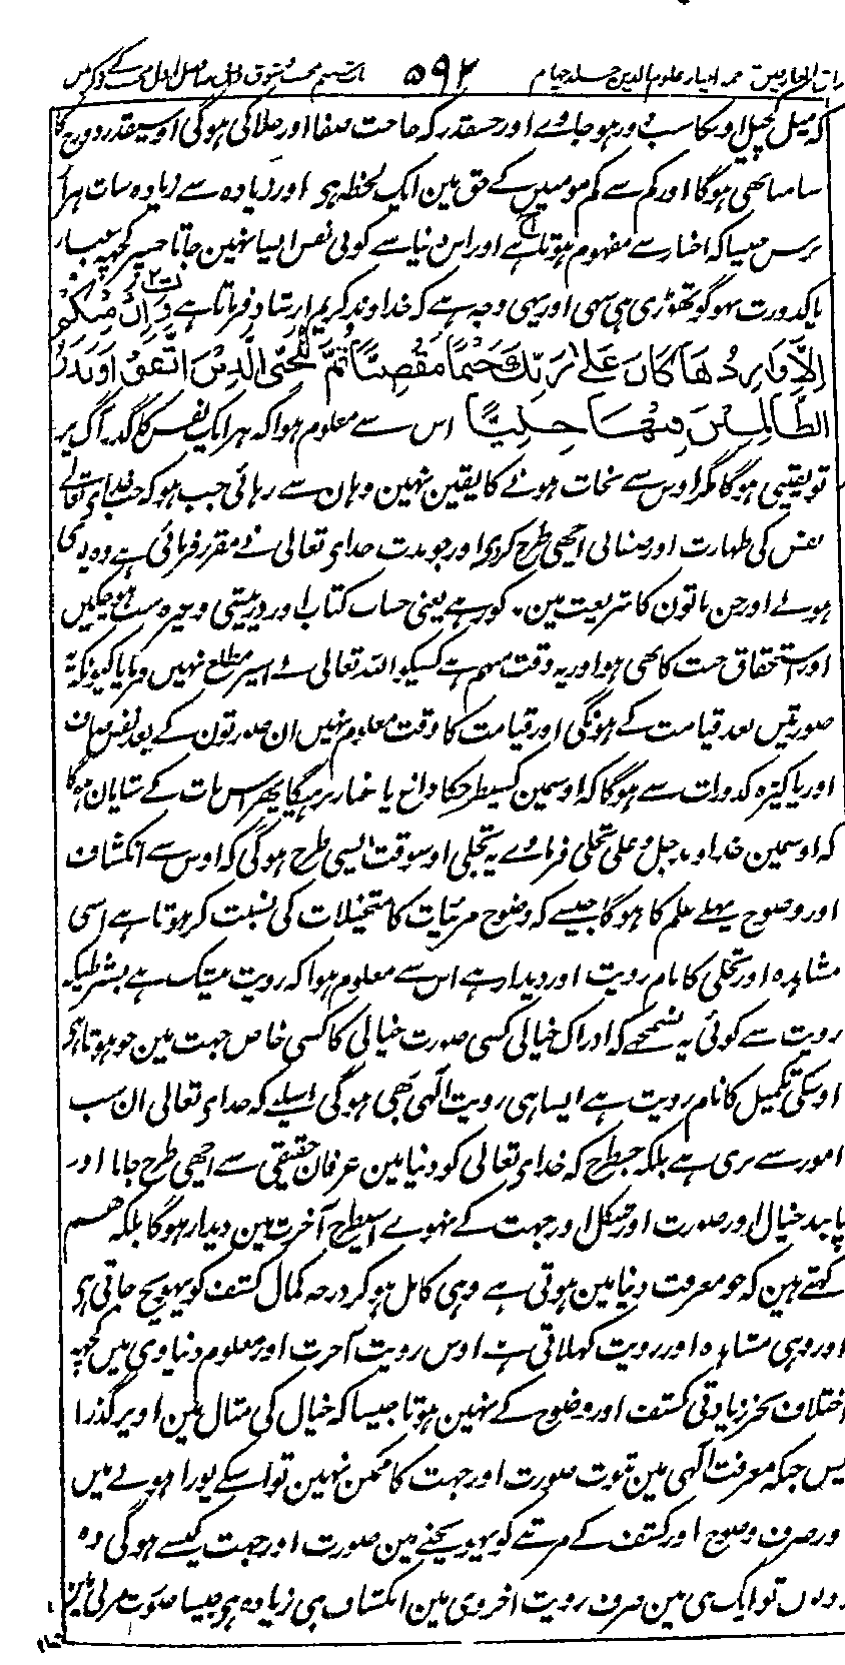 مذاق العارفین ترجمہ احیاء علوم الدین جلد چہارم ۵۹۲ باب ششم محبت و شوق فصل اول محبت کے ذکر میں
کہ میل کچیل اوسکا سب دور ہو جاوے اور جسقدر کہ حاجت صفا اور جلا کی ہوگی اوسیقدر دوزخ کا
سامنا بھی ہوگا اور کم سے کم مومنین کے حق مین ایک لحظہ ہی اور زیادہ سے زیادہ سات ہزار
برس جیسا کہ اخبار سے مفہوم ہوتا ہے اور اس دنیا سے کوئی نفس ایسا نہین جاتا جسپر کچھہ غبار
یا کدورت نہو گو تھوڑی ہی سہی اور یہی وجہ ہے کہ خداوند کریم ارشاد فرماتا ہے وَاِنْ مِّنْكُمْ
اِلَّا وَارِدُهَا كَانَ عَلٰى رَبِّكَ حَتْمًا مَّقْضِيًّا ثُمَّ نُنَجِّى الَّذِيْنَ اتَّقَوْا وَنَذَرُ
الظَّالِمِيْنَ فِيْهَا جِثِيًّا اس سے معلوم ہوا کہ ہر ایک نفس کا گذر آگ پر
تو یقینی ہوگا مگر اوس سے نجات ہونے کا یقین نہین وہان سے رہائی جب ہو کہ جب خداے تعالے
نفس کی طہارت اور صفائی اچھی طرح کردی اور جو مدت خداے تعالی نے مقرر فرمائی ہے وہ پوری
ہولے اور جن باتون کا شریعت مین مذکور ہے یعنی حساب کتاب اور درپیشی وغیرہ سب ہوچکین
اور استحقاق جنت کا بھی ہو اور یہ وقت مبہم ہے کسیکو اللہ تعالی نے اسپر مطلع نہیں فرمایا کیونکہ یہ
صورتیں بعد قیامت کے ہونگی اور قیامت کا وقت معلوم نہیں ان صورتون کے بعد نفس صاف
اور پاکیزہ کدورات سے ہوگا کہ اوسمین کسیطرحکا داغ یا غبار نرہیگا پھر اس بات کے شایان ہوگا
کہ اوسمین خداوند جل و علی تجلی فرماوے یہ تجلی اوسوقت ایسی طرح ہوگی کہ اوس سے انکشاف
اور وضوح پہلے علم کا ہوگا جیسے کہ وضوح مرئیات کا متخیلات کی نسبت کر ہوتا ہے اسی
مشاہدہ اور تجلی کا نام رویت اور دیدار ہے اس سے معلوم ہوا کہ رویت بیشک ہے بشرطیکہ
رویت سے کوئی یہ نسمجھے کہ ادراک خیالی کسی صورت خیالی کا کسی خاص جہت مین جو ہوتا ہو
اوسکی تکمیل کا نام رویت ہے ایسا ہی رویت الٰہی بھی ہوگی اسلیے کہ خداے تعالی ان سب
امور سے بری ہے بلکہ جسطرح کہ خداے تعالی کو دنیا مین عرفان حقیقی سے اچھی طرح جانا اور
پابند خیال اور صورت اور شکل اور جہت کے نہوے اسیطرح آخرت مین دیدار ہوگا بلکہ ہم
کہتے ہین کہ جو معرفت دنیا مین ہوتی ہے وہی کامل ہو کر درجہ کمال کشف کو پہونچ جاتی ہو
اور وہی مشاہدہ اور رویت کہلاتی ہے اوس رویت آخرت اور معلوم دنیاوی میں کچھہ
اختلاف بجز زیادتی کشف اور وضوح کے نہین ہوتا جیسا کہ خیال کی مثال مین اوپر گذرا
پس جبکہ معرفت الٰہی مین ثبوت صورت اور جہت کا ممکن نہین تو اسکے پورا ہونے میں
اور صرف وضوح اور کشف کے مرتبے کو پہونچنے مین صورت اور جہت کیسے ہوگی وہ
دونوں تو ایک ہی ہین صرف رویت اخروی مین انکشاف ہی زیادہ ہے جیسا صورت مرئی مین